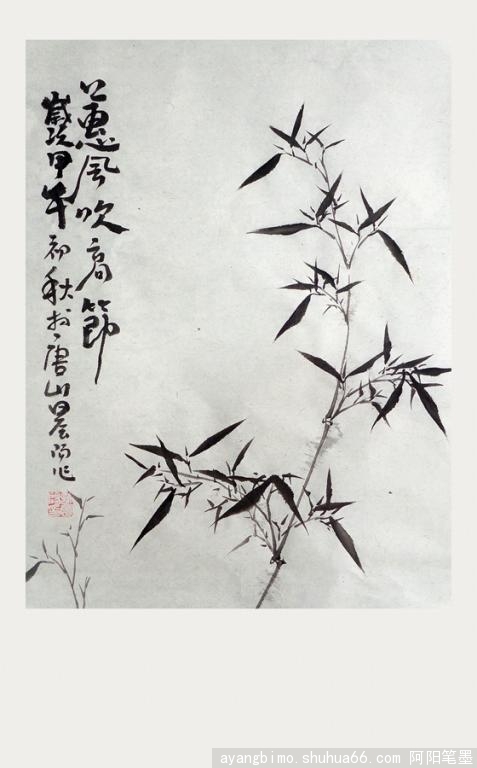 蕙风吹高節
歲次甲午初秋於唐山晨阳作
ayangbimo.shuhua66.com 阿阳笔墨